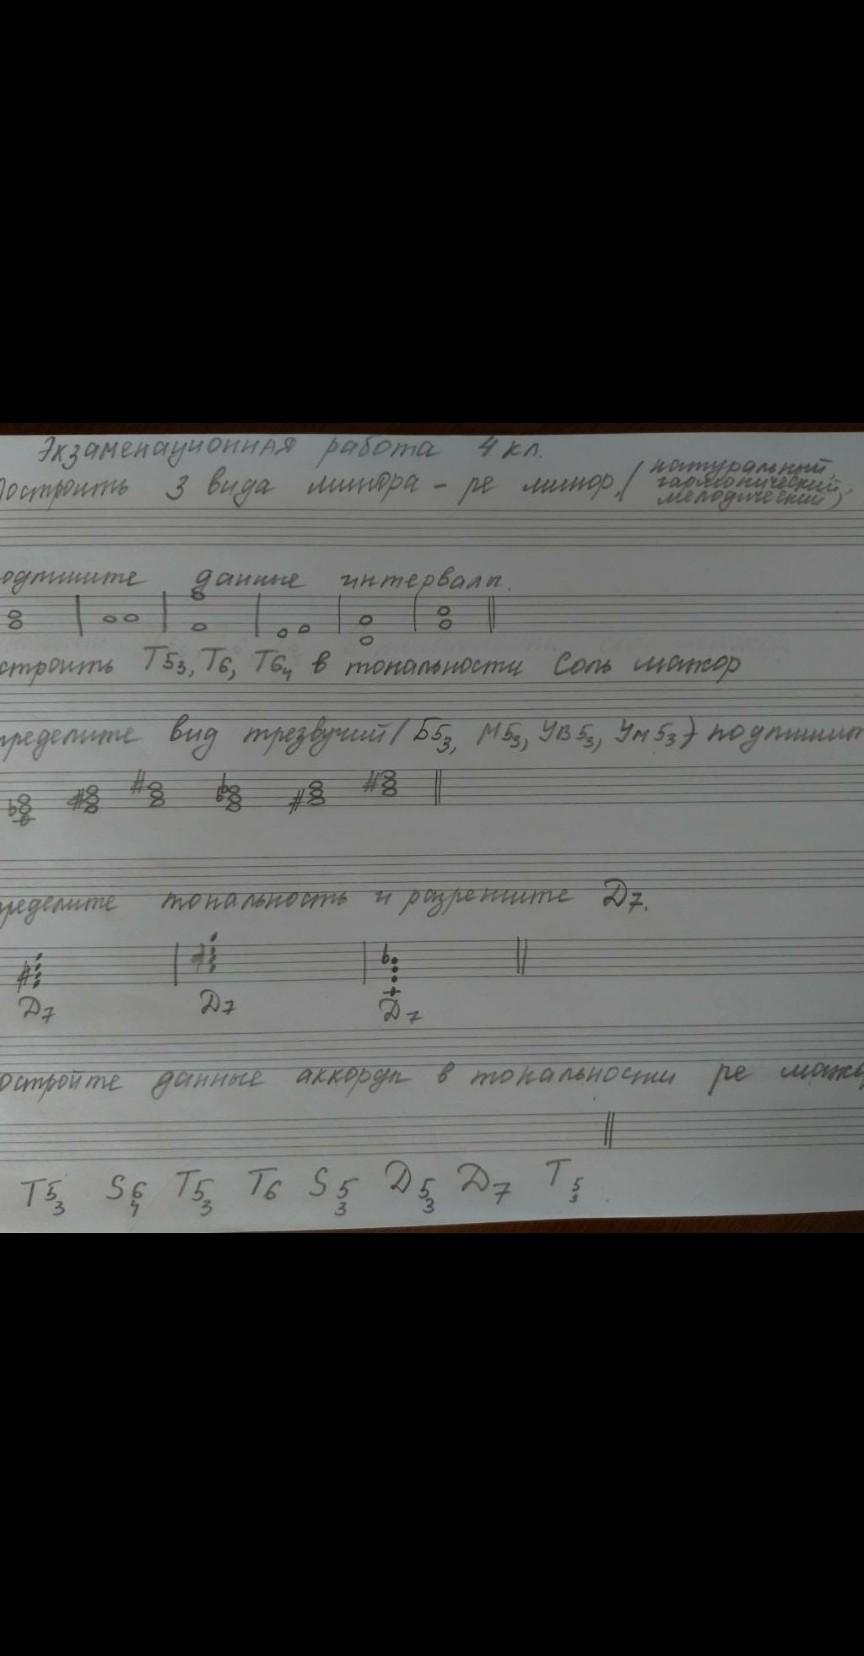 Экзаменационная работа 4 кл.
Построить 3 вида минора - ре минор (натуральный,
гармонический,
мелодический)
одпишите данные интервалы.
строить T53, T6, T64 в тональности Соль мажор
пределите вид трезвучий (Б53, М53, УВ53, УМ53) подпишит
пределите тональность и разрешите D7.
D7 D7 D7
остройте данные аккорды в тональности ре мажо
T53 S64 T53 T6 S53 D53 D7 T53